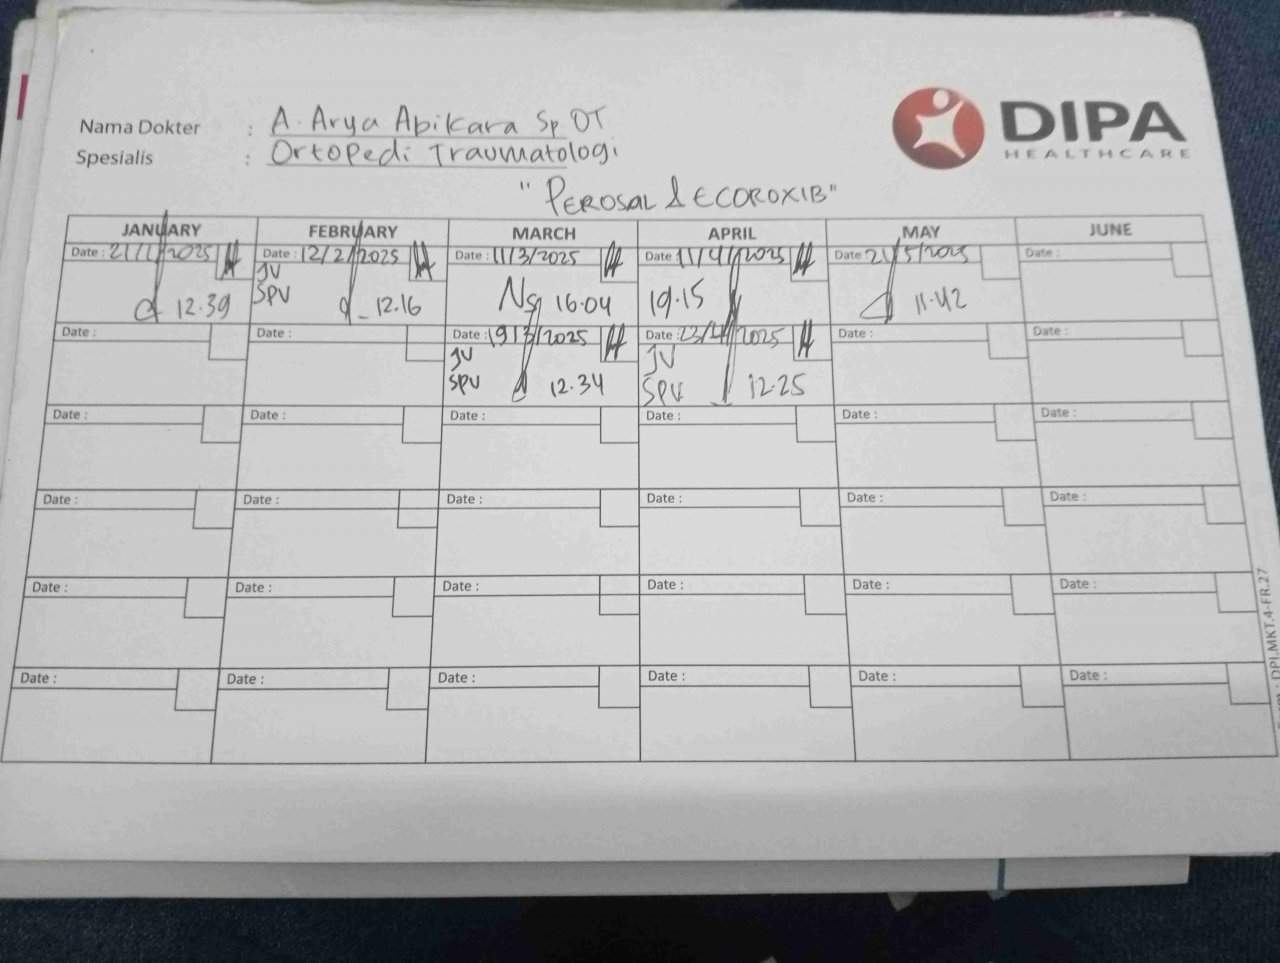 Nama Dokter : A. Arya Abikara Sp OT
Spesialis : Ortopedi Traumatologi
DIPA
HEALTHCARE
"PEROSAL & ECOROXIB"
JANUARY FEBRUARY MARCH APRIL MAY JUNE
Date : 21/1/2025 Date : 12/2/2025 Date : 11/3/2025 Date : 11/4/2025 Date : 21/5/2025 Date :
JV
SPV
12.39 12.16 16.04 19.15 11.42
Date : Date : Date : 19/3/2025 Date : 23/4/2025 Date : Date :
JV JV
SPV 12.34 SPV 12.25
Date : Date : Date : Date : Date : Date :
Date : Date : Date : Date : Date : Date :
Date : Date : Date : Date : Date : Date :
Date : Date : Date : Date : Date : Date :
: DPI.MKT.4-FR.27